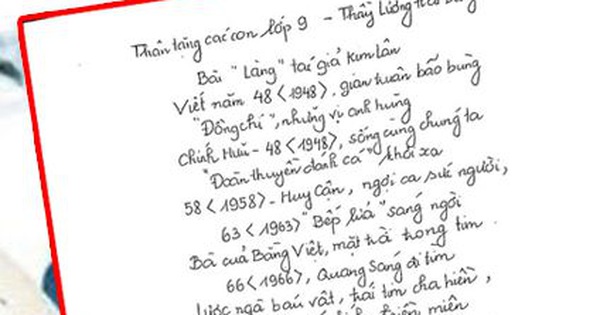 Thân tặng các con lớp 9 - Thầy Lương
Bài "Làng" tác giả Kim Lân
Viết năm 48 <1948>, gian truân bão bùng
"Đồng chí", những vị anh hùng
Chính Hữu - 48 <1948>, sống cùng chúng ta
"Đoàn thuyền đánh cá" khơi xa
58 <1958> - Huy Cận, ngợi ca sức người,
63 <1963> "Bếp lửa" sáng ngời
Bà của Bằng Việt, mặt trời trong tim.
66 <1966>, Quang Sáng đi tìm
Lược ngà báu vật, trái tim cha hiền,
miên